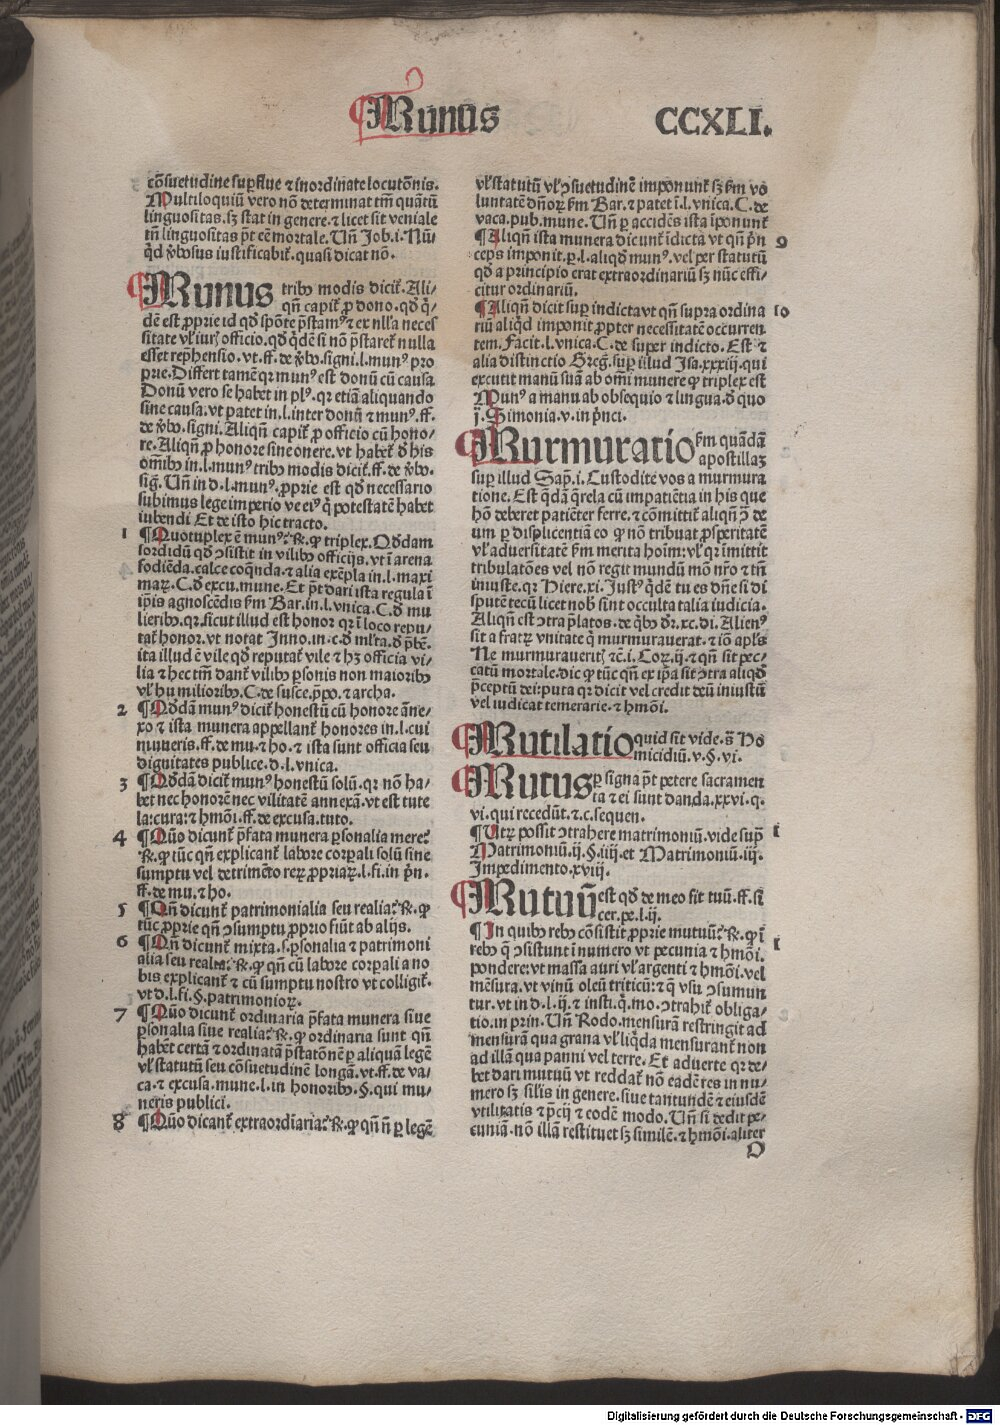 Munus
CCXLI.
cōsuetudine superflue ⁊ inordinate locutōnis.
Multiloquiū vero nō determinat tm̄ quātū
linguositas. sꝫ stat in genere. ⁊ licet sit veniale
tn̄ linguositas pōt eē mortale. Un̄ Job. i. Nū⸗
qđ v̄bosus iustificabit̄. quasi dicat nō.
Munus tribꝰ modis dicit̄. Ali⸗
qn̄ capit̄ ꝓ dono. qđ q̄⸗
dē est ꝓprie id qđ spōte p̄stamꝰ ⁊ ex nll'a neces
sitate vl' iur̄ officio. qđ qdē si nō p̄staret̄ nulla
esset rep̄hensio. vt. ff. de v̄bo. signi. l. munꝰ pro
prie. Differt tamē qꝛ munꝰ est donū cū causa
Donū vero se habet in plꝰ. qꝛ etiā aliquando
sine causa. vt patet in. l. inter donū ⁊ munꝰ. ff.
de v̄bo. signi. Aliqn̄ capit̄ ꝓ officio cū hono⸗
re. Aliqn̄ ꝓ honore sine onere. vt habet̄ đ his
om̄ibꝰ in. l. munꝰ tribꝰ modis dicit̄. ff. de v̄bo.
sig. Un̄ in d. l. munꝰ. ꝓprie est qđ necessario
subimus lege imperio ve eiꝰ q̄ potestatē habet
iubendi Et de isto hic tracto.
1 ¶ Quotuplex ē munꝰ: ℞. ꝙ triplex. Qđdam
sordidū qđ ↄsistit in vilibꝰ officijs. vt ī arena
fodiēda. calce coqn̄da. ⁊ alia exēpla in. l. maxi
maꝝ. C. đ excu. mune. Et pōt dari ista regula ī
ip̄is agnoscēdis ẜm Bar. in. l. vnica. C. đ mu
lieribꝰ. qꝛ sicut illud est honor qꝛ ī loco repu⸗
tat̄ honor. vt notat Inno. in. c. đ ml'ta. đ p̄bē.
ita illud ē vile qđ reputat̄ vile ⁊ hꝫ officia vi⸗
lia ⁊ hec tm̄ dant̄ vilibꝰ ꝑsonis non maioribꝰ
vl' humilioribꝰ. C. de susce. ꝓpo. ⁊ archa.
2 ¶ Qđdā munꝰ dicit̄ honestū cū honore āne⸗
xo ⁊ ista munera appellant̄ honores in. l. cui
muneris. ff. de mu. ⁊ ho. ⁊ ista sunt officia seu
dignitates publice. d. l. vnica.
3 ¶ Qđdā dicit̄ munꝰ honestū solū. qꝛ nō ha⸗
bet nec honorē nec vilitatē annexā. vt est tute
la: cura: ⁊ hmōi. ff. de excusa. tuto.
4 ¶ Qūo dicunt̄ p̄fata munera ꝑsonalia mere:
℞. ꝙ tūc qn̄ explicant̄ labore corꝑali solū sine
sumptu vel detrimēto reꝝ ꝓpriaꝝ. l. fi. in pn̄.
ff. de mu. ⁊ ho.
5 ¶ Qn̄ dicunt̄ patrimonialia seu realia: ℞. ꝙ
tūc ꝓprie qn̄ ↄsumptu ꝓprio fiūt ab alijs.
6 ¶ Qn̄ dicunt̄ mixta. s. ꝑsonalia ⁊ patrimoni
alia seu realia: ℞. ꝙ qn̄ cū labore corꝑali a no
bis explicant̄ ⁊ cū sumptu nostro vt colligit̄.
vt d. l. fi. §. patrimonioꝝ.
7 ¶ Qūo dicunt̄ ordinaria p̄fata munera siue
ꝑsonalia siue realia: ℞. ꝙ ordinaria sunt qn̄
habēt certā ⁊ ordinatā p̄statōnē ꝑ aliquā legē
vl' statutū seu cōsuetudinē longā. vt. ff. de va⸗
ca. ⁊ excusa. mune. l. in honoribꝰ. §. qui mu⸗
neris publici.
8 ¶ Qūo dicant̄ extraordīaria: ℞. ꝙ qn̄ n̄ ꝑ legē
vl' statutū vl' ↄsuetudinē imponunt̄ sꝫ ẜm vo
luntatē dn̄oꝝ ẜm Bar. ⁊ patet ī. l. vnica. C. de
vaca. pub. mune. Un̄ ꝑ accidēs ista īponunt̄
¶ Aliqn̄ ista munera dicunt̄ īdicta vt qn̄ p̄n 9
ceps imponit. ꝑ. l. aliqđ munꝰ. vel per statutū
qđ a principio erat extraordinariū sꝫ nūc effi⸗
citur ordinariū.
¶ Aliqn̄ dicit̄ suꝑ indicta vt qn̄ supra ordina 10
riū aliqd imponit̄ ꝓpter necessitatē occurren
tem. Facit. l. vnica. C. de super indicto. Est ⁊
alia distinctio Greg. suꝑ illud Isa. xxxiij. qui
excutit manū suā ab om̄i munere ꝙ triplex est
Munꝰ a manu ab obsequio ⁊ lingua. đ quo
j̄. Simonia. v. in p̄nci.
Murmuratio ẜm quādā
apostillaꝫ
suꝑ illud Sap. i. Custodite vos a murmura
tione. Est q̄dā q̄rela cū impatiētia in his que
hō deberet patiēter ferre. ⁊ cōmittit̄ aliqn̄ ↄ̄ de
um ꝑ displicentiā eo ꝙ nō tribuat ꝓsperitatē
vl' aduersitatē ẜm merita hoīm: vl' qꝛ īmittit
tribulatōes vel nō regit mundū mō nr̄o ⁊ tn̄
iniuste. qꝛ Hiere. xi. Iustꝰ qdē tu es dn̄e si di
sputē tecū licet nob̄ sint occulta talia iudicia.
Aliqn̄ est ↄtra p̄latos. de qbꝰ dr̄. xc. di. Alienꝰ
sit a fratꝝ vnitate q̄ murmurauerat. ⁊ iō apl's
Ne murmuraueritꝭ ⁊c. i. Coꝝ. ij. ⁊ qn̄ sit pec⸗
catū mortale. dic ꝙ tūc qn̄ ex ip̄a sit ↄtra aliqđ
p̄ceptū dei: puta qꝛ dicit vel credit deū iniustū
vel iudicat temerarie. ⁊ hmōi.
Mutilatio quid sit vide. s̄. Ho
micidiū. v. §. vi.
Mutus ꝑ signa pōt petere sacramen
ta ⁊ ei sunt danda. xxvi. q.
vi. qui recedūt. ⁊. c. sequen.
¶ Utꝝ possit ↄtrahere matrimoniū. vide sup̄ 1
Matrimoniū. ij. §. iiij. et Matrimoniū. iij.
Impedimento. xviij.
Mutuū est qđ de meo fit tuū. ff. si
cer. pe. l. ij.
¶ In quibꝰ rebꝰ cōsistit ꝓprie mutuū: ℞. ꝙ ī 1
rebꝰ q̄ ↄsistunt ī numero vt pecunia ⁊ hmōi.
pondere: vt massa auri vl' argenti ⁊ hmōi. vel
mēsura. vt vinū oleū triticū: ⁊ q̄ vsu ↄsumun
tur. vt in d. l. ij. ⁊ insti. q. mo. ↄtrahit̄ obliga⸗
tio. in prin. Un̄ Rodo. mensurā restringit ad
mensurā qua grana vl' liqda mensurant̄ non
ad illā qua panni vel terre. Et aduerte qꝛ de⸗
bet dari mutuū vt reddat̄ nō eadē res in nu⸗
mero sꝫ silis in genere. siue tantundē ⁊ eiusdē
vtilitatis ⁊ p̄cij ⁊ eodē modo. Un̄ si dedit pe⸗
cuniā. nō illā restituet sꝫ similē. ⁊ hmōi. aliter
O
Digitalisierung gefördert durch die Deutsche Forschungsgemeinschaft - DFG